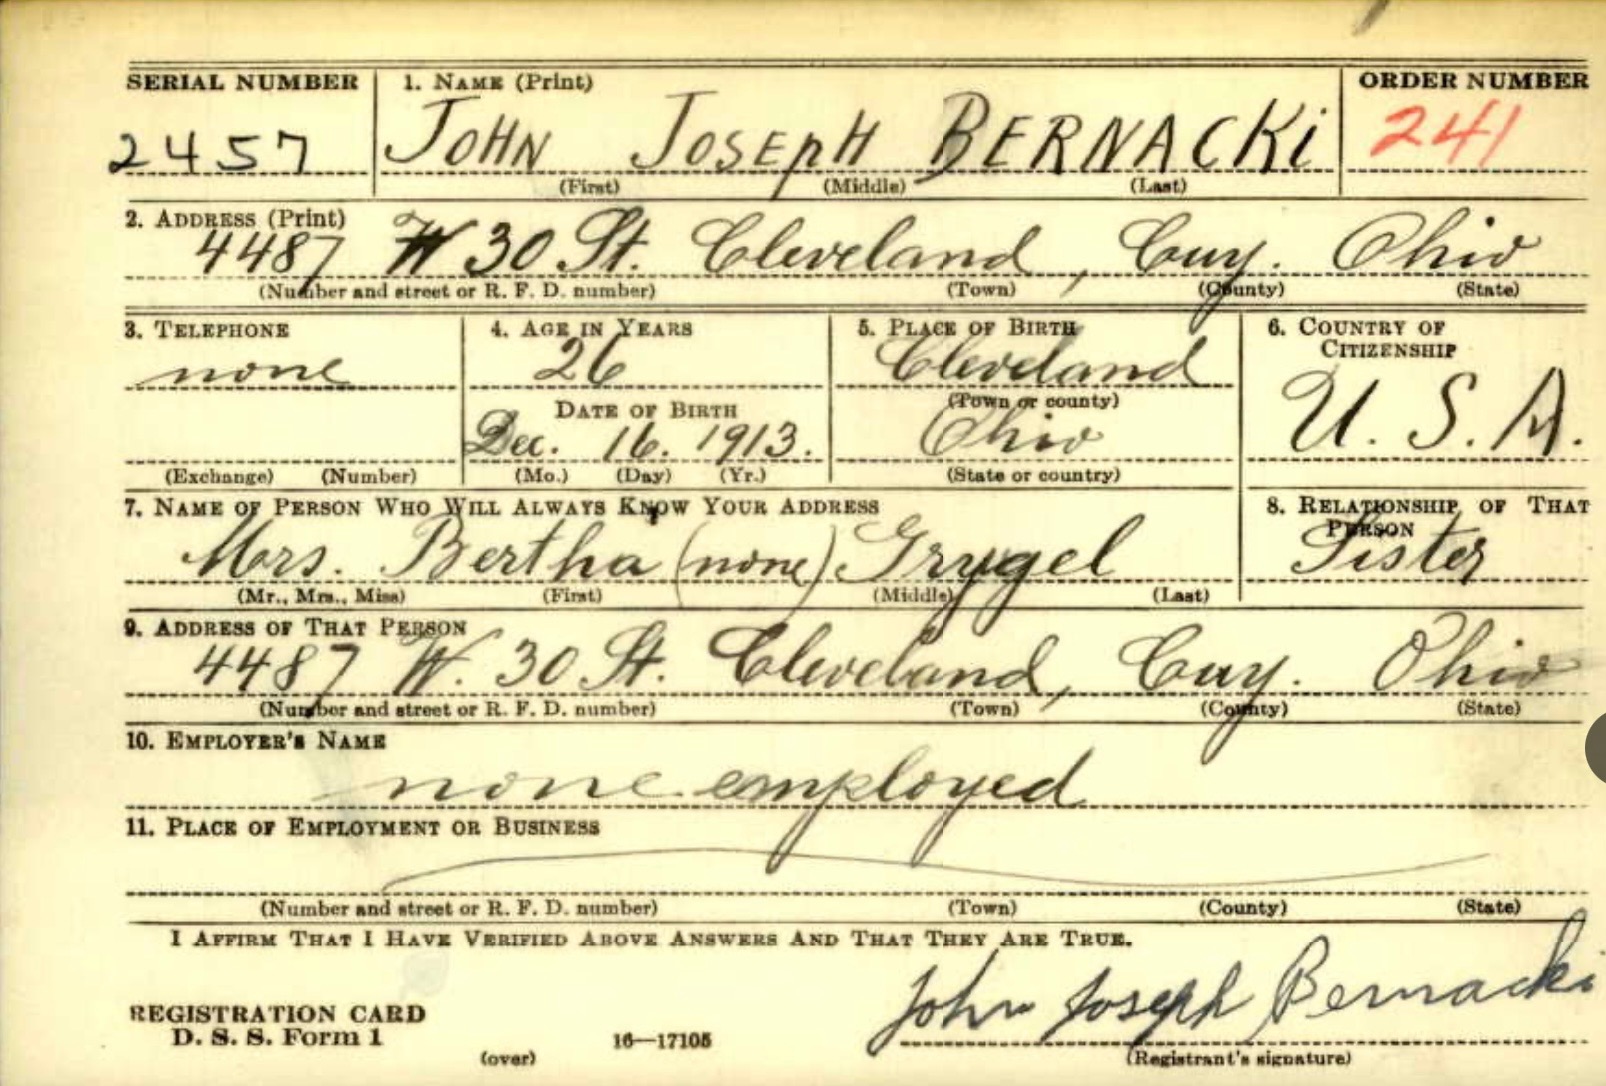 SERIAL NUMBER 1. NAME (Print) ORDER NUMBER
2457 JOHN JOSEPH BERNACKi 241
(First) (Middle) (Last)
2. ADDRESS (Print)
4487 W 30 St. Cleveland, Cuy. Ohio
(Number and street or R. F. D. number) (Town) (County) (State)
3. TELEPHONE 4. AGE IN YEARS 5. PLACE OF BIRTH 6. COUNTRY OF CITIZENSHIP
none 26 Cleveland U. S. A.
(Town or county)
DATE OF BIRTH
Dec. 16. 1913. Ohio
(Exchange) (Number) (Mo.) (Day) (Yr.) (State or country)
7. NAME OF PERSON WHO WILL ALWAYS KNOW YOUR ADDRESS 8. RELATIONSHIP OF THAT PERSON
Mrs. Bertha (none) Grygel Sister
(Mr., Mrs., Miss) (First) (Middle) (Last)
9. ADDRESS OF THAT PERSON
4487 W. 30 St. Cleveland, Cuy. Ohio
(Number and street or R. F. D. number) (Town) (County) (State)
10. EMPLOYER'S NAME
none employed
11. PLACE OF EMPLOYMENT OR BUSINESS
(Number and street or R. F. D. number) (Town) (County) (State)
I AFFIRM THAT I HAVE VERIFIED ABOVE ANSWERS AND THAT THEY ARE TRUE.
John Joseph Bernacki
REGISTRATION CARD
D. S. S. Form 1 16—17105
(over) (Registrant's signature)